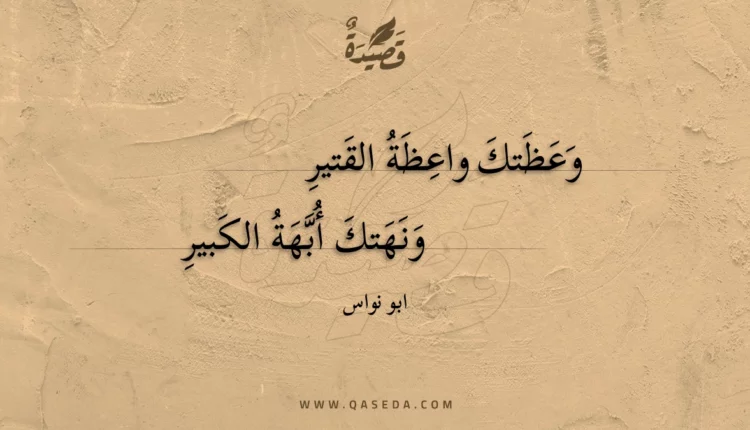 قَصِيدَةٌ
وَعَظَتكَ واعِظَةُ القَتيرِ
وَنَهَتكَ أُبَّهَةُ الكَبيرِ
ابو نواس
WWW.QASEDA.COM